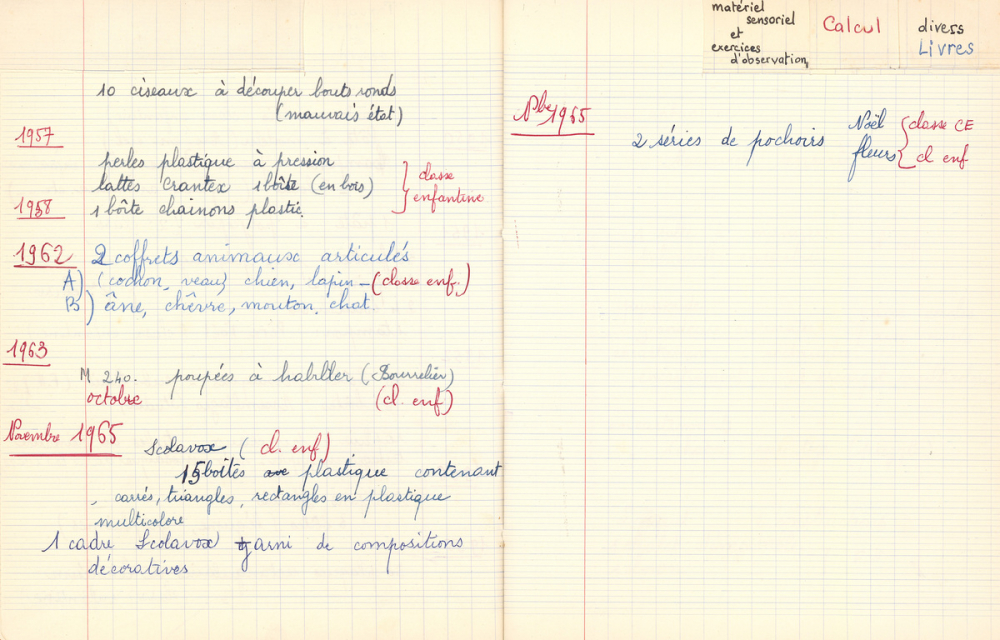 10 ciseaux à découper bouts ronds
(mauvais état)
1957
perles plastique à pression
lattes crantex 1 boîte (en bois)
classe
enfantine
1958
1 boîte chainons plastic.
1962 2 coffrets animaux articulés
A) (cochon, veau) chien, lapin - (classe enf.)
B) âne, chêvre, mouton, chat.
1963
M 240. poupées à habiller (Bourrelier)
octobre (cl. enf)
Novembre 1965
Scolavox (cl. enf)
15 boîtes plastique contenant
carrés, triangles, rectangles en plastique
multicolore
1 cadre Scolavox garni de compositions
décoratives
matériel
sensoriel
et
exercices
d'observation
Calcul
divers
Livres
Nbe 1965
2 séries de pochoirs
Noël classe CE
fleurs cl enf